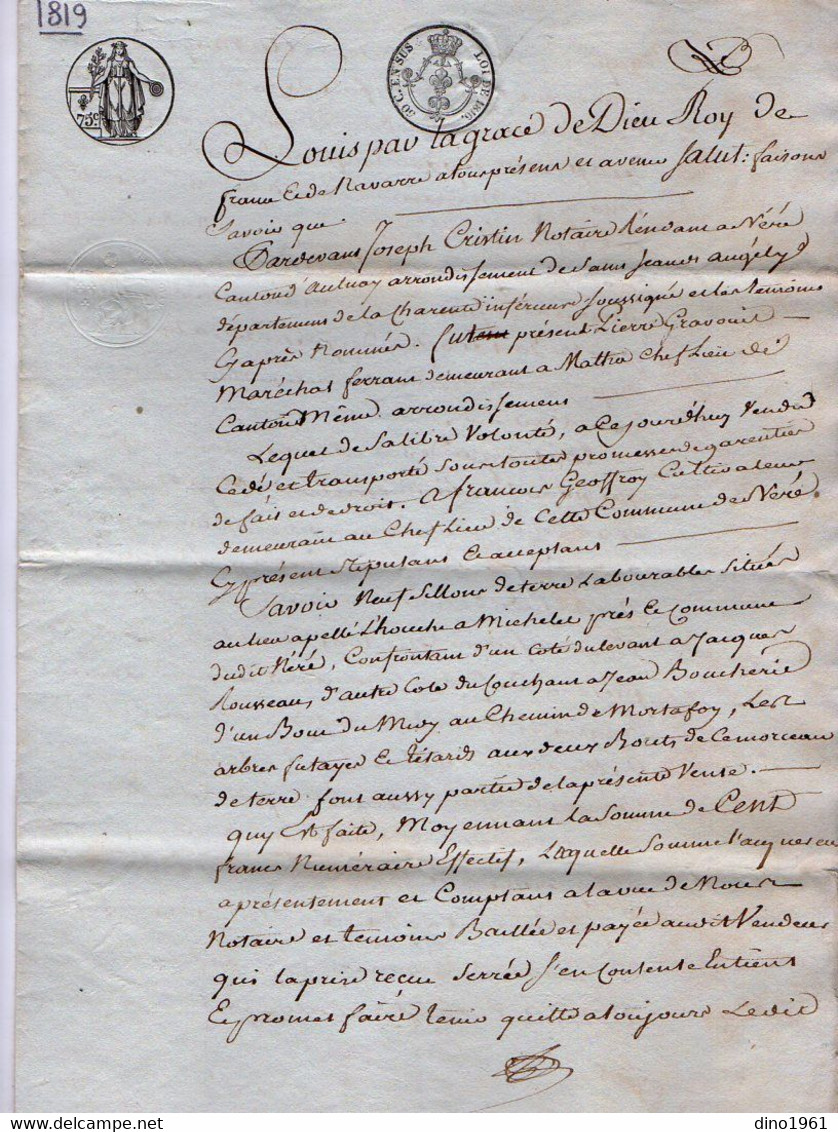 1819
75c.
50 C. EN SUS LOI DE 1816.
Louis par la grace de Dieu Roy de
france Et de Navarre atous présens et avenir Salut: faisons
Savoir que
Pardevant Joseph Cristin Notaire Résidant a Néré
Canton d'Aulnay arrondissement de Saint Jean d'Angély
département de la Charente inférieure Soussigné et les temoins
Cy après Nommés. fut présent Pierre Gravouil
Maréchal ferrant demeurant a Matha Chef Lieu de
Canton Même arrondissement
Lequel de Sa libre Volonté, a Cejourd'huy Vendu
Cédé et transporté Sous toutes promesses de garenties
de fait et de droit. A francois Geoffroy Cultivateur
demeurant au Chef Lieu de Cette Commune de Néré
Cy présent Stipulant Et acceptant
Savoir Neuf Sillons de terre Labourables Situés
au lieu apellé Lhouche a Michelet près Et Commune
dudit Néré, Confrontant d'un Coté du levant a Jacques
Rousseau, d'autre Coté du Couchant a Jean Boucherie
d'un Bout du Midy au Chemin de Mortafoy, Les
arbres futayes Et tétards aux deux Bouts de Cemorceau
de terre font aussy partie de la présente Vente.
quy Est faite, Moyennant la Somme de Cent
francs Numéraire Effectif, Laquelle Somme l'acquereur
a présentement et Comptant a la vue de Nous
Notaire et temoins Baillée et payée audit Vendeur
qui la prise recue Serrée S'en Contente Entient
Et promet faire tenir quitte a toujours Ledit
dino1961